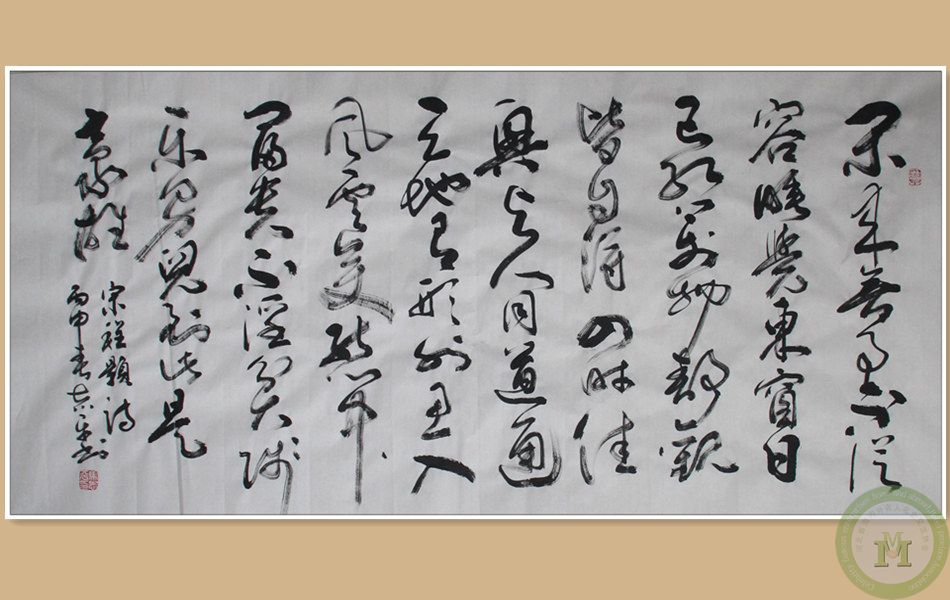 闲来無事不從
容睡覺東窗日
已红万物靜觀
皆自得四时佳
興与人同道通
天地有形外思入
風雲变態中
富貴不淫貧贱
乐男兒到此是
豪雄
宋程颢詩
丙申春